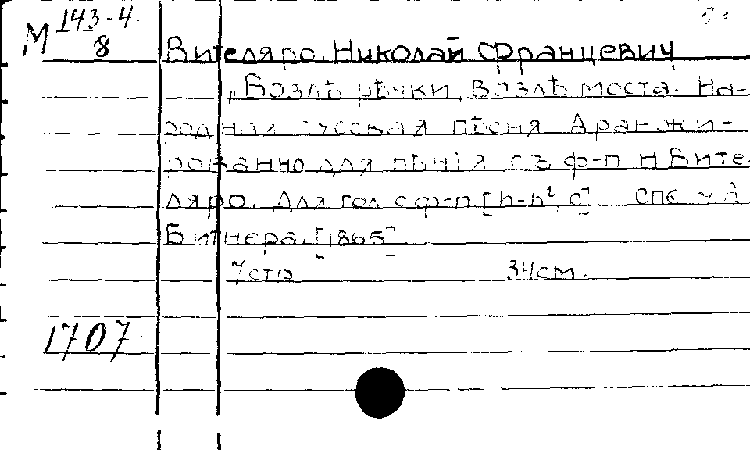 М 143-4
8
Вителяро, Николай Францевич
„Возлѣ рѣчки, возлѣ моста. На-
родная русская пѣсня. Аранжи-
рованно для пѣнія съ ф-п Н Вите-
ляро. Для гол с ф-п [h-h², c] СПб у А
Битнера. [1865].
7 стр 34 см.
1707